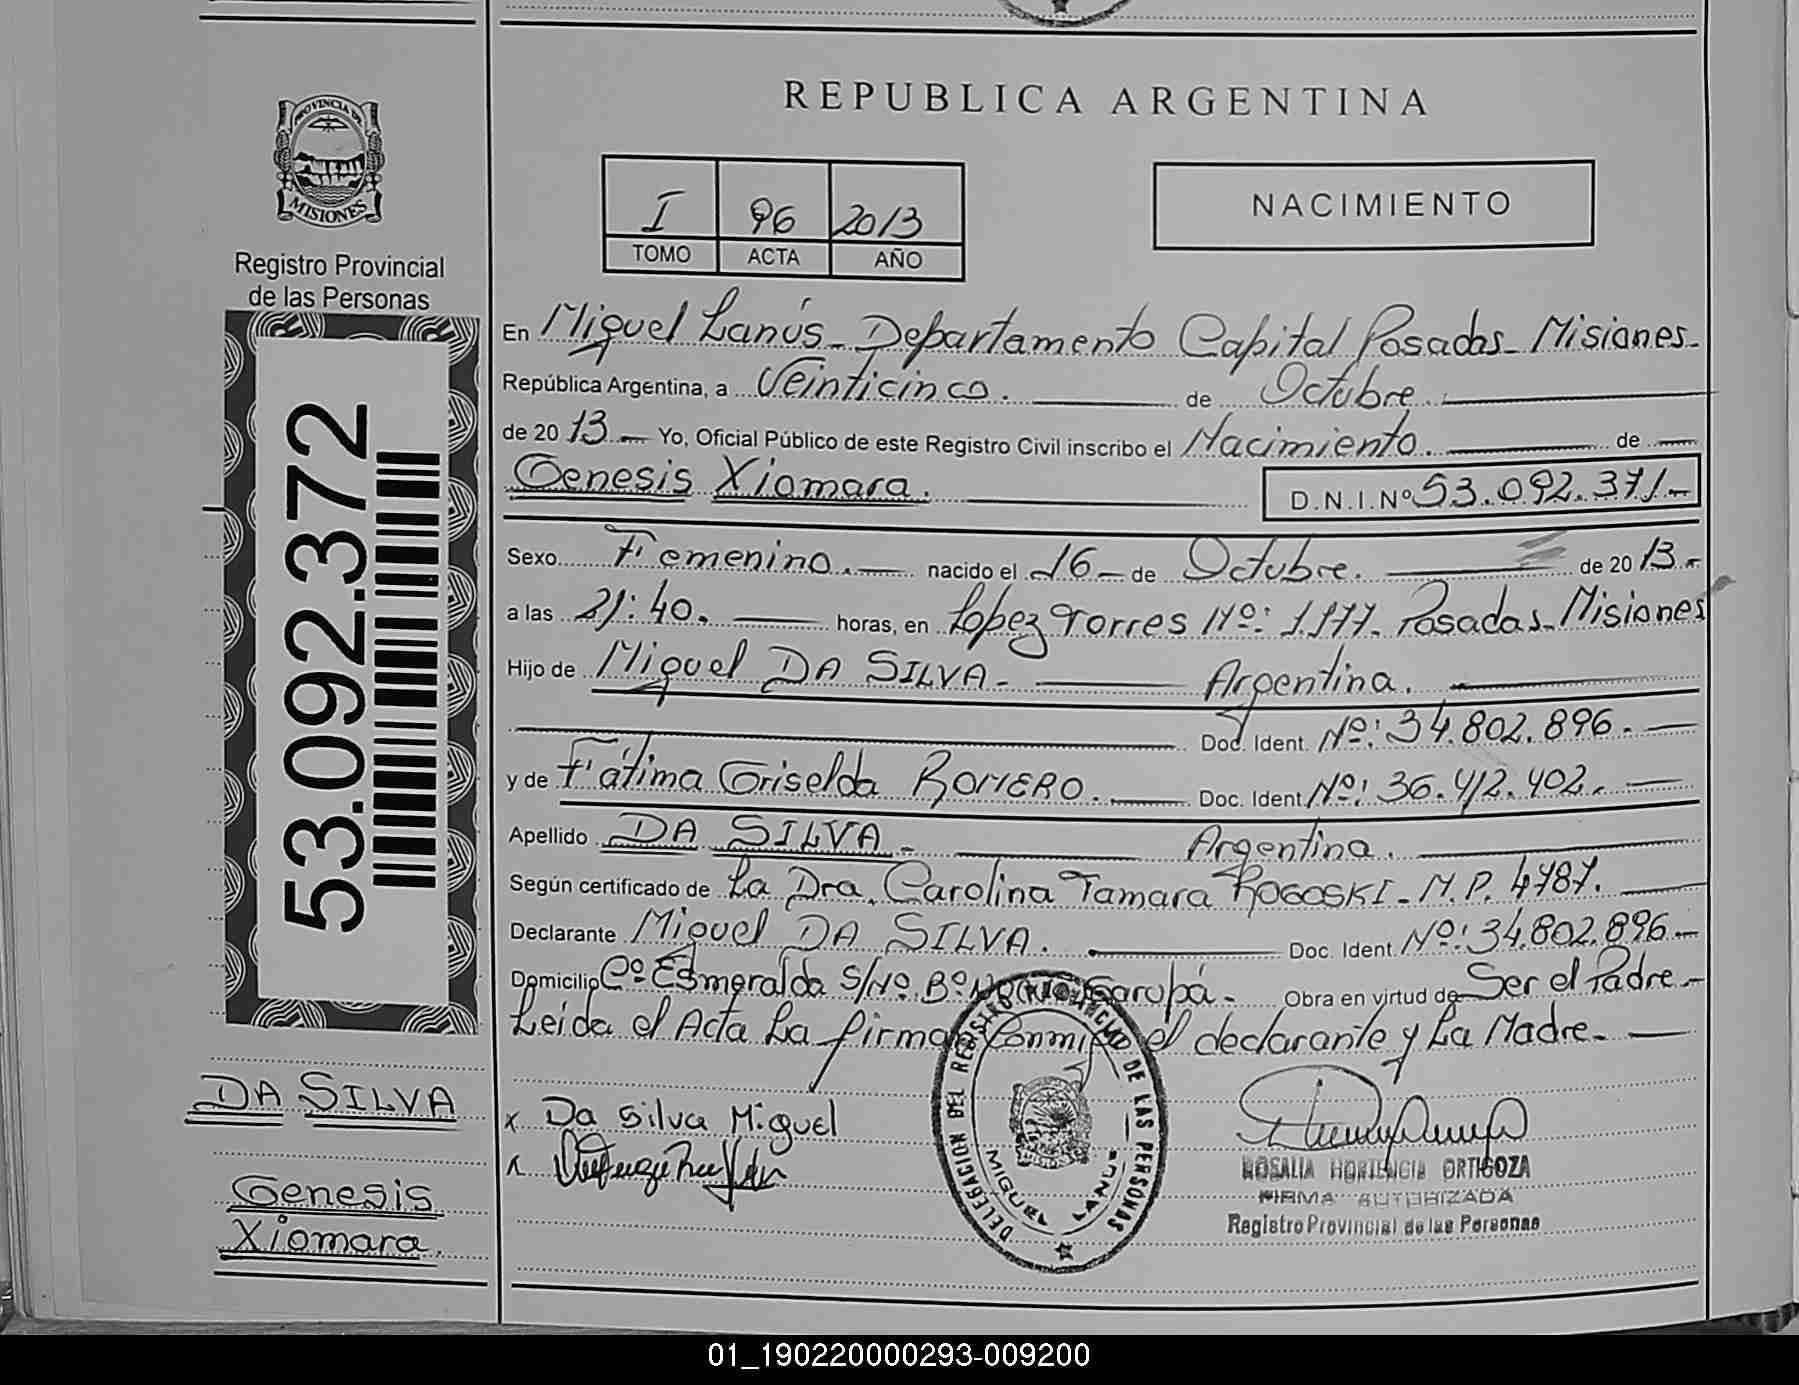 REPUBLICA ARGENTINA
PROVINCIA DE
MISIONES
Registro Provincial
de las Personas
I 96 2013
TOMO ACTA AÑO
NACIMIENTO
53.092.372
En Miguel Lanús - Departamento Capital Posadas - Misiones -
República Argentina, a Veinticinco. de Octubre.
de 20 13 - Yo, Oficial Público de este Registro Civil inscribo el Nacimiento. de
Genesis Xiomara. D.N.I. Nº 53.092.371.-
Sexo Femenino. - nacido el 16 - de Octubre. de 20 13.-
a las 21:40. horas, en Lopez Torres Nº: 1.177. Posadas - Misiones
Hijo de Miguel DA SILVA - Argentina.
Doc. Ident. Nº: 34.802.896. -
y de Fátima Griselda ROMERO. - Doc. Ident. Nº: 36.412.402. -
Apellido DA SILVA - Argentina.
Según certificado de La Dra. Carolina Tamara ROGOSKI - M.P. 4787.
Declarante Miguel DA SILVA. Doc. Ident. Nº: 34.802.896.-
Domicilio Cº Esmeralda S/Nº. Bº Garupá - Obra en virtud de Ser el Padre -
Leida el Acta La firma Conmigo el declarante y La Madre. -
DA SILVA
Genesis
Xiomara.
x Da Silva Miguel
DELEGACION DEL REGISTRO PROVINCIAL DE LAS PERSONAS
MIGUEL LANUS
ROSALIA HORTENCIA ORTIGOZA
FIRMA AUTORIZADA
Registro Provincial de las Personas
01_190220000293-009200